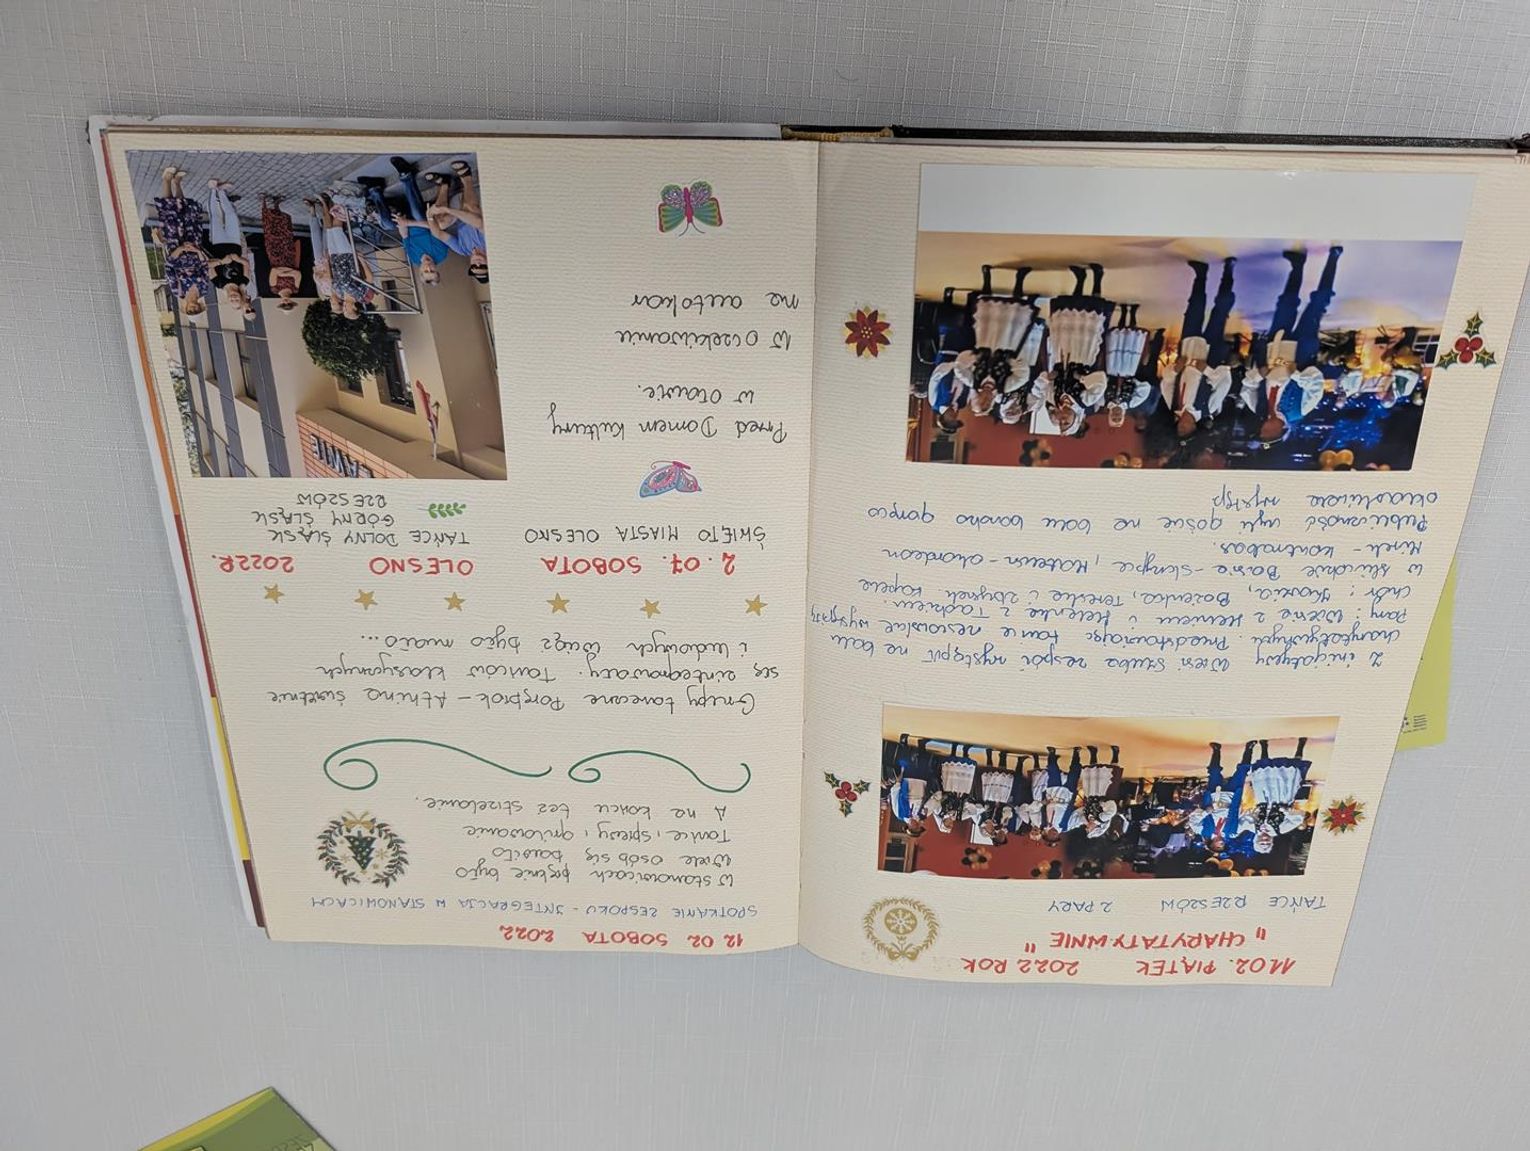 11.02. PIĄTEK 2022 ROK
"CHARYTATYWNIE"
TAŃCE RZESZÓW 2 PARY
Z inicjatywy Wiesi Szuba zespół wystąpił na balu
charytatywnym. Przedstawiając tańce rzeszowskie wystąpiły
Pary: Wiesia z Heniem i Helenka z Tadziem.
Chór: Maria, Bożenka, Tereska i zbytnek kapela
w składzie Basia - skrzypce, - akordeon
Mirek - kontrabas.
Publiczność czyli goście na balu bardzo gorąco
oklaskiwała występ
12.02 SOBOTA 2022
SPOTKANIE ZESPOŁU - INTEGRACJA W STANOWICACH
W Stanowicach pięknie było
Wiele osób się bawiło
Tańce, śpiewy i grilowanie
A na końcu też strzelanie.
Grupy taneczne Porębiok - Athina świetnie
się zintegrowały. Tańców klasycznych
i ludowych wciąż było mało...
2.07. SOBOTA OLESNO 2022R.
ŚWIĘTO MIASTA OLESNO
TAŃCE DOLNY ŚLĄSK
GÓRNY ŚLĄSK
RZESZÓW
Przed Domem Kultury
w Oławie.
W oczekiwaniu
na autokar